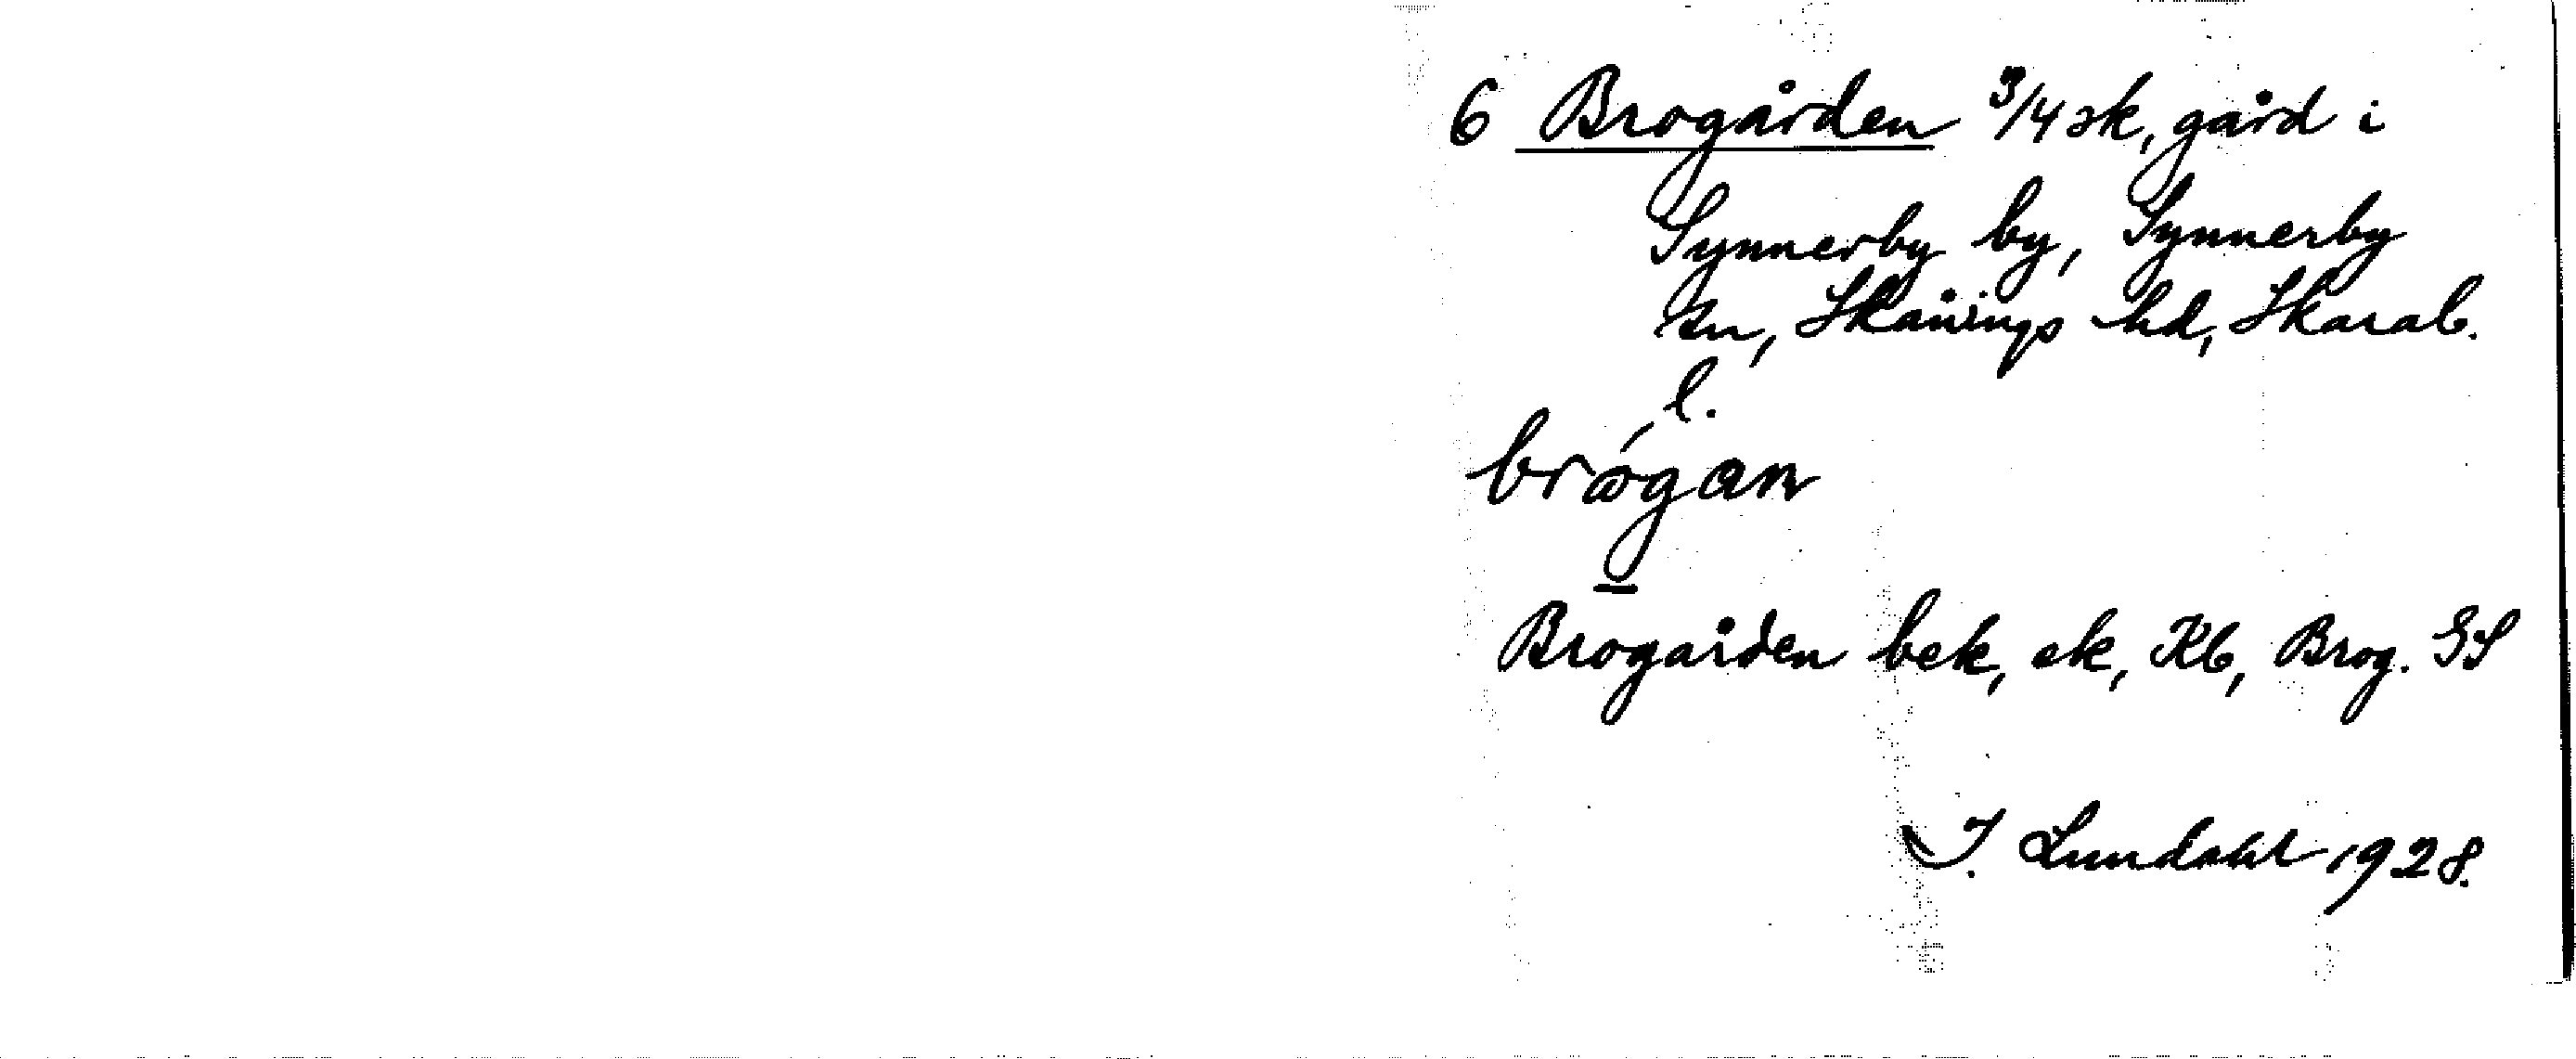 6 Brogården 3/4 sk, gård i
Synnerby by, Synnerby
sn, Skånings hd, Skarab.
l.
brógan
Brogården bek, ek, Kb, Brog. GS
I. Lundahl 1928.